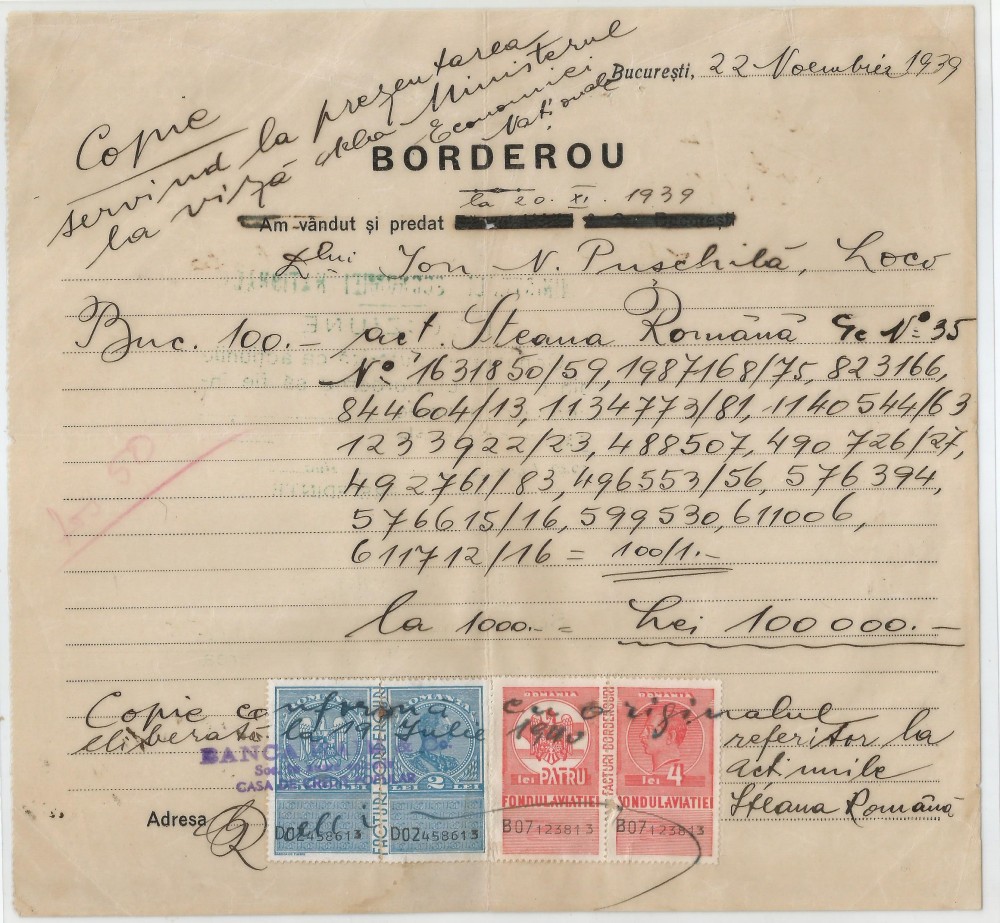 București, 22 Noembrie 1939
Copie
servind la prezentarea
la viză Ministerul
Economiei
Naționale
BORDEROU
la 20. XI. 1939
Am vândut și predat
Dlui Ion N. Puschilă, Loco
Buc. 100.- act. Steaua Română Gc No 35
No 1631850/59, 1987168/75, 823166,
844604/13, 1134773/81, 1140544/63
1233922/23, 488507, 490726/27,
492761/83, 496553/56, 576394,
576615/16, 599530, 611006,
611712/16 = 100/1.-
la 1000.- = Lei 100000.-
Copie conforma cu originalul
eliberată la 19 Iulie 1940 referitor la
acțiunile
Steaua Română
BANCA
CASA DE
ROMANIA ROMANIA ROMANIA ROMANIA
2 LEI
lei PATRU lei 4
FACTURI-BORDEROURI
FONDUL AVIATIEI FONDUL AVIATIEI
Adresa
D02458613 D02458613 B07123813 B07123813